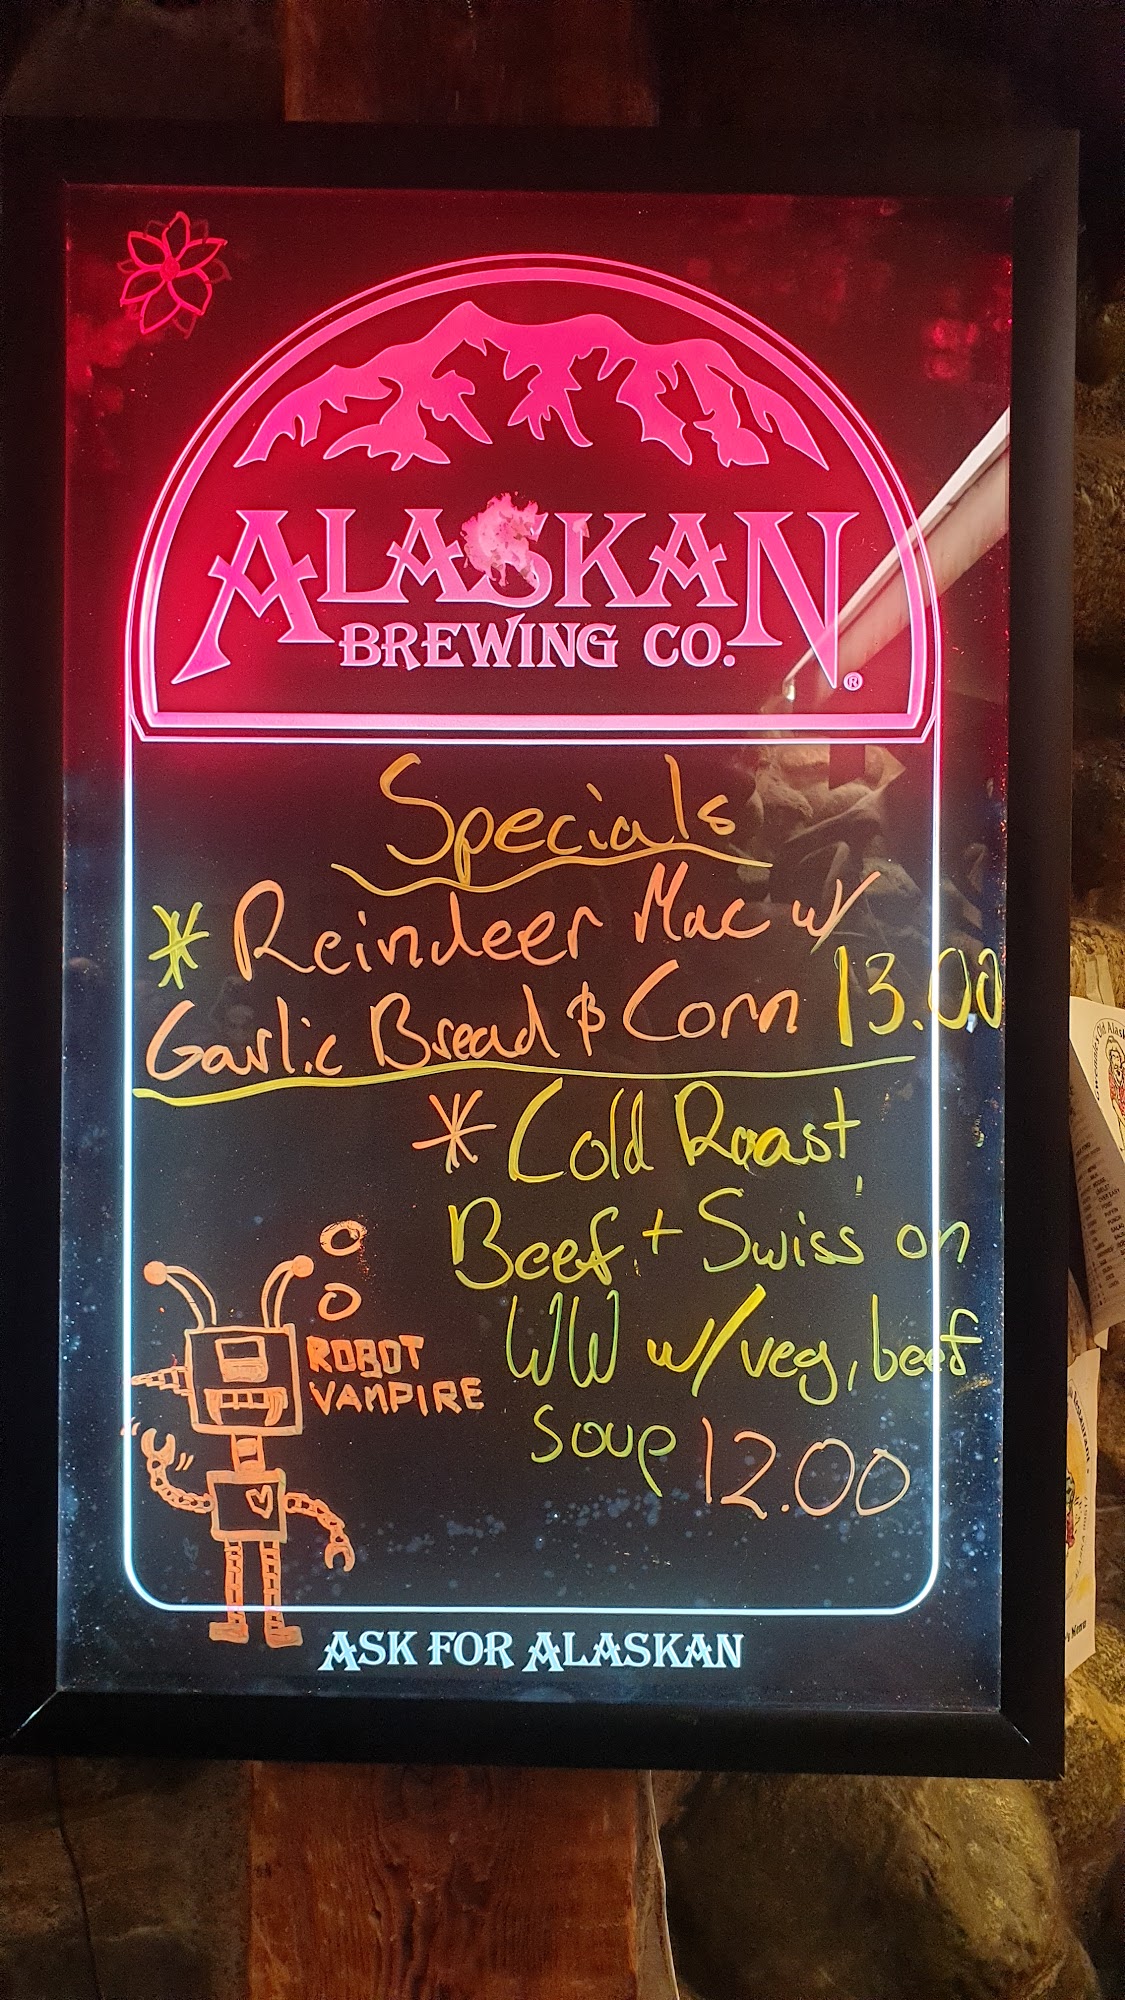 ALASKAN
BREWING CO.
®
Specials
* Reindeer Mac w/
Garlic Bread & Corn 13.00
* Cold Roast
Beef + Swiss on
WW w/veg, beef
soup 12.00
ROBOT
VAMPIRE
ASK FOR ALASKAN